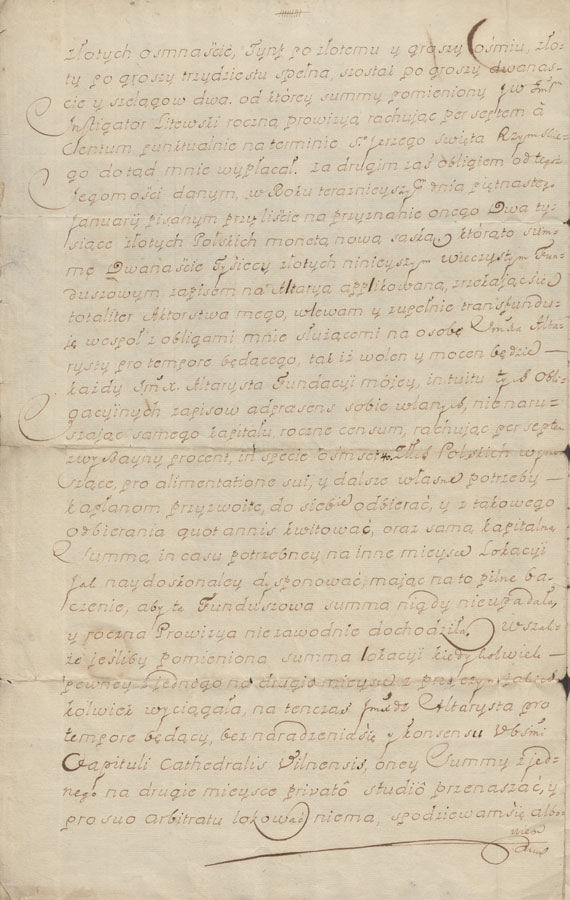 złotych osmnaście, Tynf po złotemu y groszy ośmiu, zło-
ty po groszy trzydziestu spełna, szostak po groszy dwanaś-
cie y szelągow dwa. od ktorey summy pomieniony JW
Instigator Litewski roczną prowizyą rachując per septem à
Centum punktualnie na terminie S. Jerzego święta Rzymskie-
go dotąd mnie wypłacał. Za drugim zaś obligiem od tegoż
Jegomości danym, w Roku teraznieyszym dnia piętnastego
January pisanym przy liście na przyznanie onego Dwa ty-
siące złotych Polskich monetą nową saską, ktorąto sum-
mę Dwanaście Tysięcy złotych ninieyszym wieczystym Fun-
duszowym zapisem na Altaryą applikowaną, zrzekając się
totaliter Aktorstwa mego, wlewam y zupełnie transfundu-
ię wespoł z obligami mnie służącemi na osobę Altar-
rysty pro tempore będącego, tak iż wolen y mocen będzie
każdy Altarysta Fundacyi mojey, intuitu tych Obli-
gacyinych zapisow ad præsens sobie wlanych, nie naru-
szając samego kapitału, roczne censum, rachując per septem
zwyczayny procent, in specie Polskich wyno-
szące, pro alimentatione sui, y dalsze własne potrzeby
kapłanom przyzwoite, do siebie odbierać, y z takowego
odbierania quot annis kwitować, oraz samą kapitalną
Summą, in casu potrzebney na inne mieysce Lokacyi
jak naydoskonaley dysponować; mając na to pilne ba-
czenie, aby ta Funduszowa summa nigdy nie upadała,
y roczna Prowizya niezawodnie dochodziła. Wszak-
że jeśliby pomieniona summa lokacyi kiedykolwiek
pewney z jednego na drugie mieysce z przyczyn jakich-
kolwiek wyciągała, na tenczas Altarysta pro
tempore będący, bez naradzenia się y konsensu
Capituli Cathedralis Vilnensis, oney Summy z jed-
nego na drugie mieysce privatô studiô przenaszać, y
pro suo arbitratu lokować niema, spodziewam się albo-
wiem